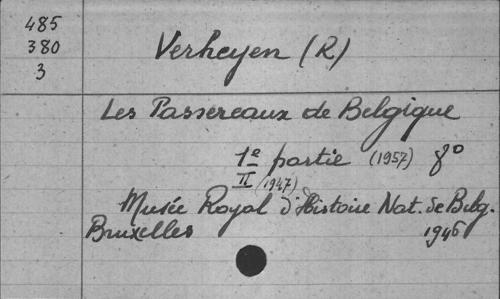 485
380
3
Verheyen (R)
Les Passereaux de Belgique
1e partie (1957) 8°
II (1947)
Musée Royal d'Histoire Nat. de Belg.
Bruxelles 1946